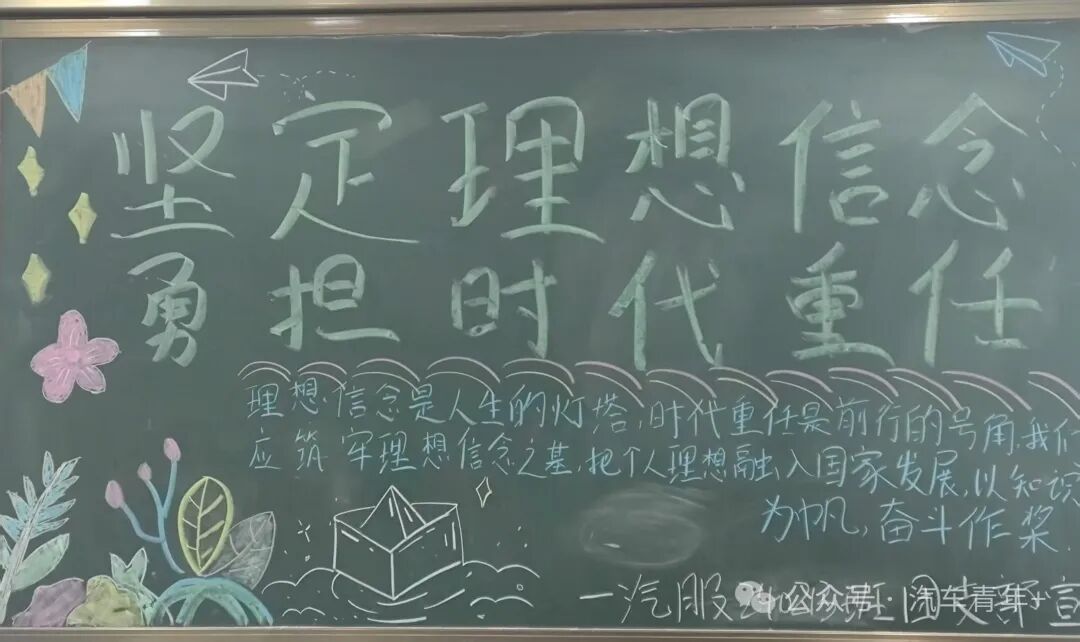 坚定理想信念
勇担时代重任
理想信念是人生的灯塔,时代重任是前行的号角,我们
应筑牢理想信念之基,把个人理想融入国家发展,以知识
为帆,奋斗作桨.
一汽服
公众号·汽车青年